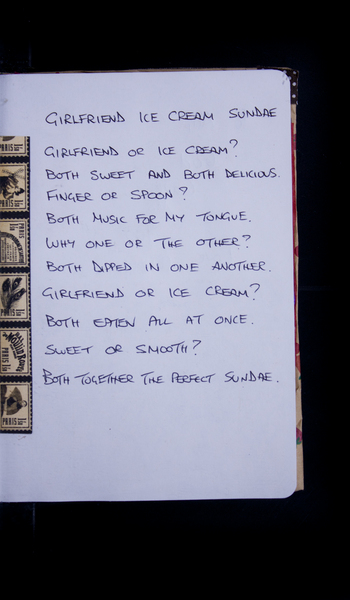 GIRLFRIEND ICE CREAM SUNDAE
GIRLFRIEND OR ICE CREAM?
BOTH SWEET AND BOTH DELICIOUS.
FINGER OR SPOON?
BOTH MUSIC FOR MY TONGUE.
WHY ONE OR THE OTHER?
BOTH DIPPED IN ONE ANOTHER.
GIRLFRIEND OR ICE CREAM?
BOTH EATEN ALL AT ONCE.
SWEET OR SMOOTH?
BOTH TOGETHER THE PERFECT SUNDAE.
PARIS
PARIS
PARIS
PARIS